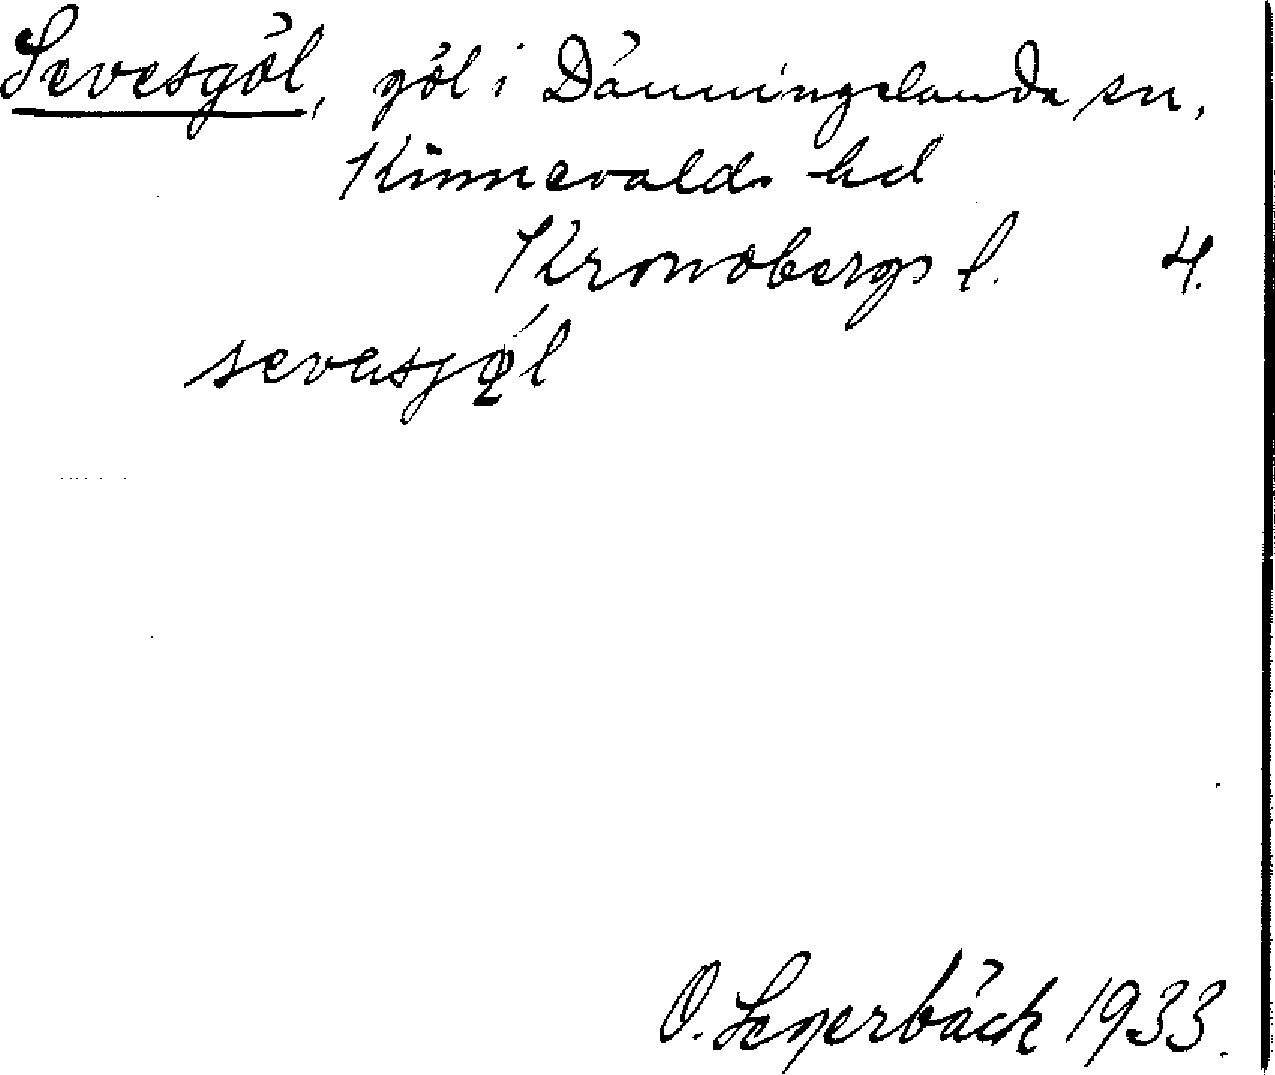 Sevesgöl, göl i Dänningelanda sn,
Kinnevalds hd
Kronobergs l. 4.
sevasjǿ̨l
O. Segerbäck 1933.